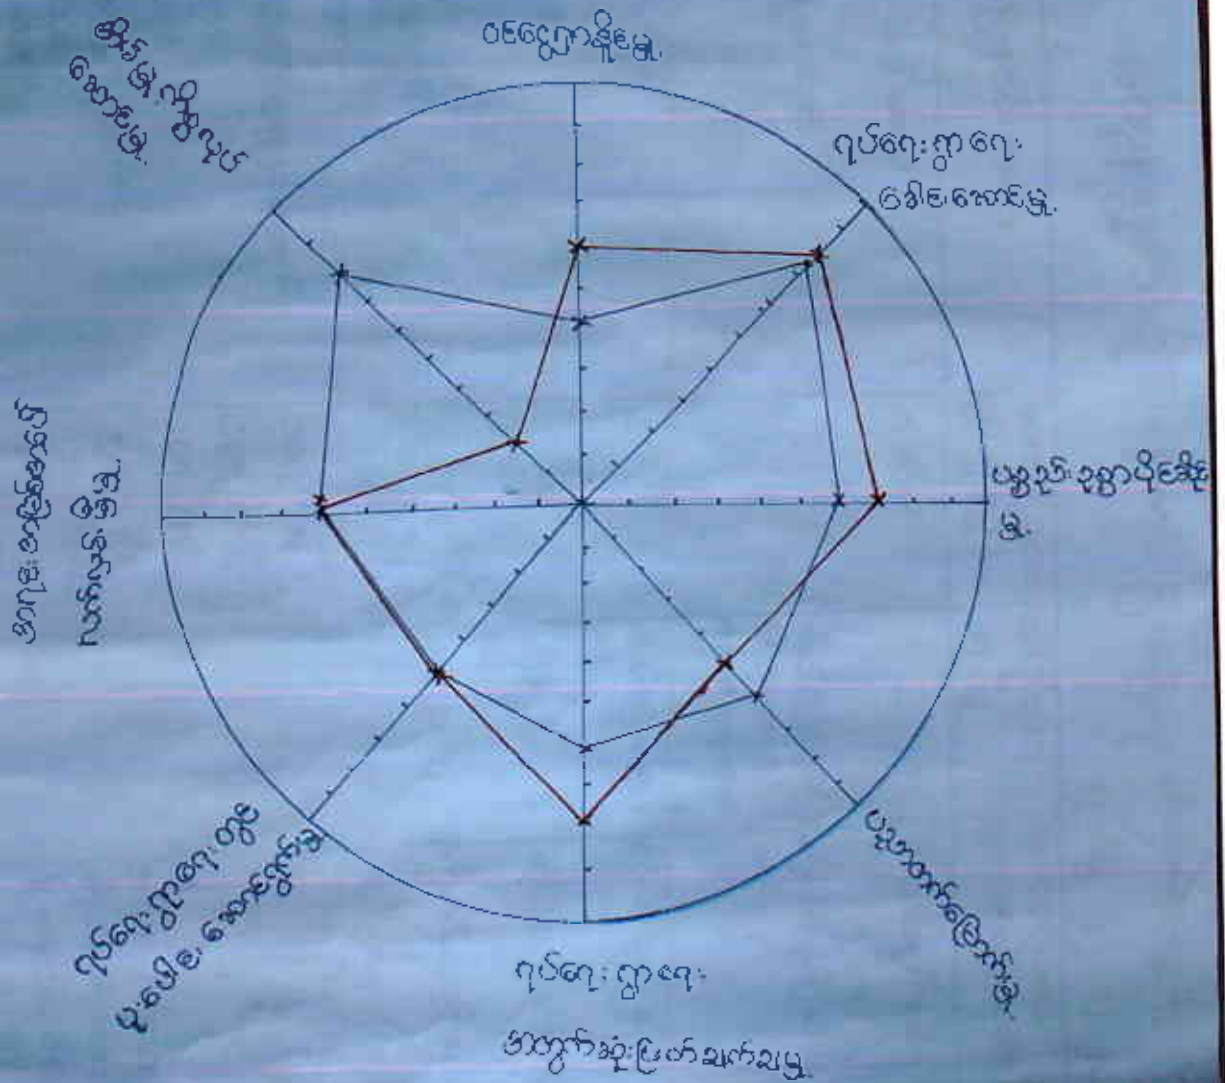 ဝင်ငွေရှာနိူင်မှု့
ရပ်ရေးရွာရေး
ခေါင်းဆောင်မှု့
ပစ္စည်းဥစ္စာပိုင်ဆိုင်
မှု့
ပညာတတ်မြောက်မှု့
ရပ်ရေးရွာရေး
အတွက်ဆုံးဖြတ်ချက်ချမှု့
ရပ်ရေးရွာရေးတွင်
ပူးပေါင်းဆောင်ရွက်မှု့
အရင်းအမြစ်အပေါ်
လက်လှမ်းမှီမှု့
အိမ်မှု့ကိစ္စလုပ်
ဆောင်မှု့